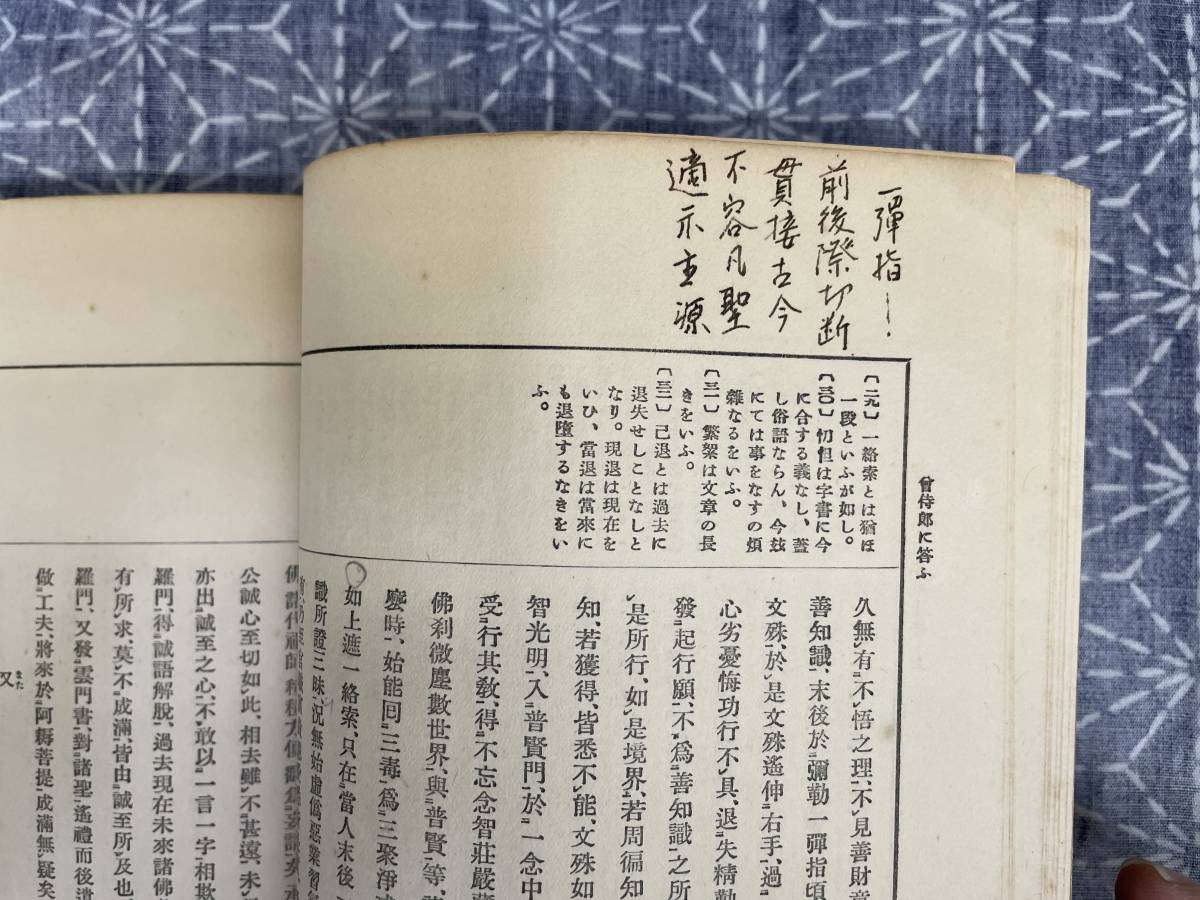 一彈指
前後際切断
貫接古今
不容凡聖
適示主源
曾侍郎に答ふ
〔二九〕一絡索とは猶ほ
一段といふが如し。
〔三〇〕忉怛は字書に今
に合する義なし、蓋
し俗語ならん、今玆
にては事をなすの煩
雜なるをいふ。
〔三一〕繁絮は文章の長
きをいふ。
〔三二〕已退とは過去に
退失せしことなしと
なり。現退は現在を
いひ、當退は當來に
も退墮するなきをい
ふ。
久無有不悟之理、不見善財章
善知識、末後於彌勒一彈指頃
文殊、於是文殊遙伸右手、過
心劣憂悔、功行不具、退失精勤
發起行願、不爲善知識之所
是所行、如是境界、若周徧知
知、若獲得、皆悉不能、文殊如
智光明、入普賢門、於一念中
受行其敎、得不忘念智莊嚴藏
佛刹微塵數世界、與普賢等、
麽時、始能回三毒、爲三聚淨
如上遮一絡索、只在當人末後
識所證三昧、況無始虛僞惡業習
公誠心至切如此、相去雖不甚遠、未
亦出誠至之心、不敢以一言一字相欺
羅門、得誠語解脫、過去現在未來諸佛
有所求、莫不成滿、皆由誠至所及也
羅門、又發雲門書、對諸聖遙禮而後遣
做工夫、將來於阿耨菩提成滿無疑矣
又
また